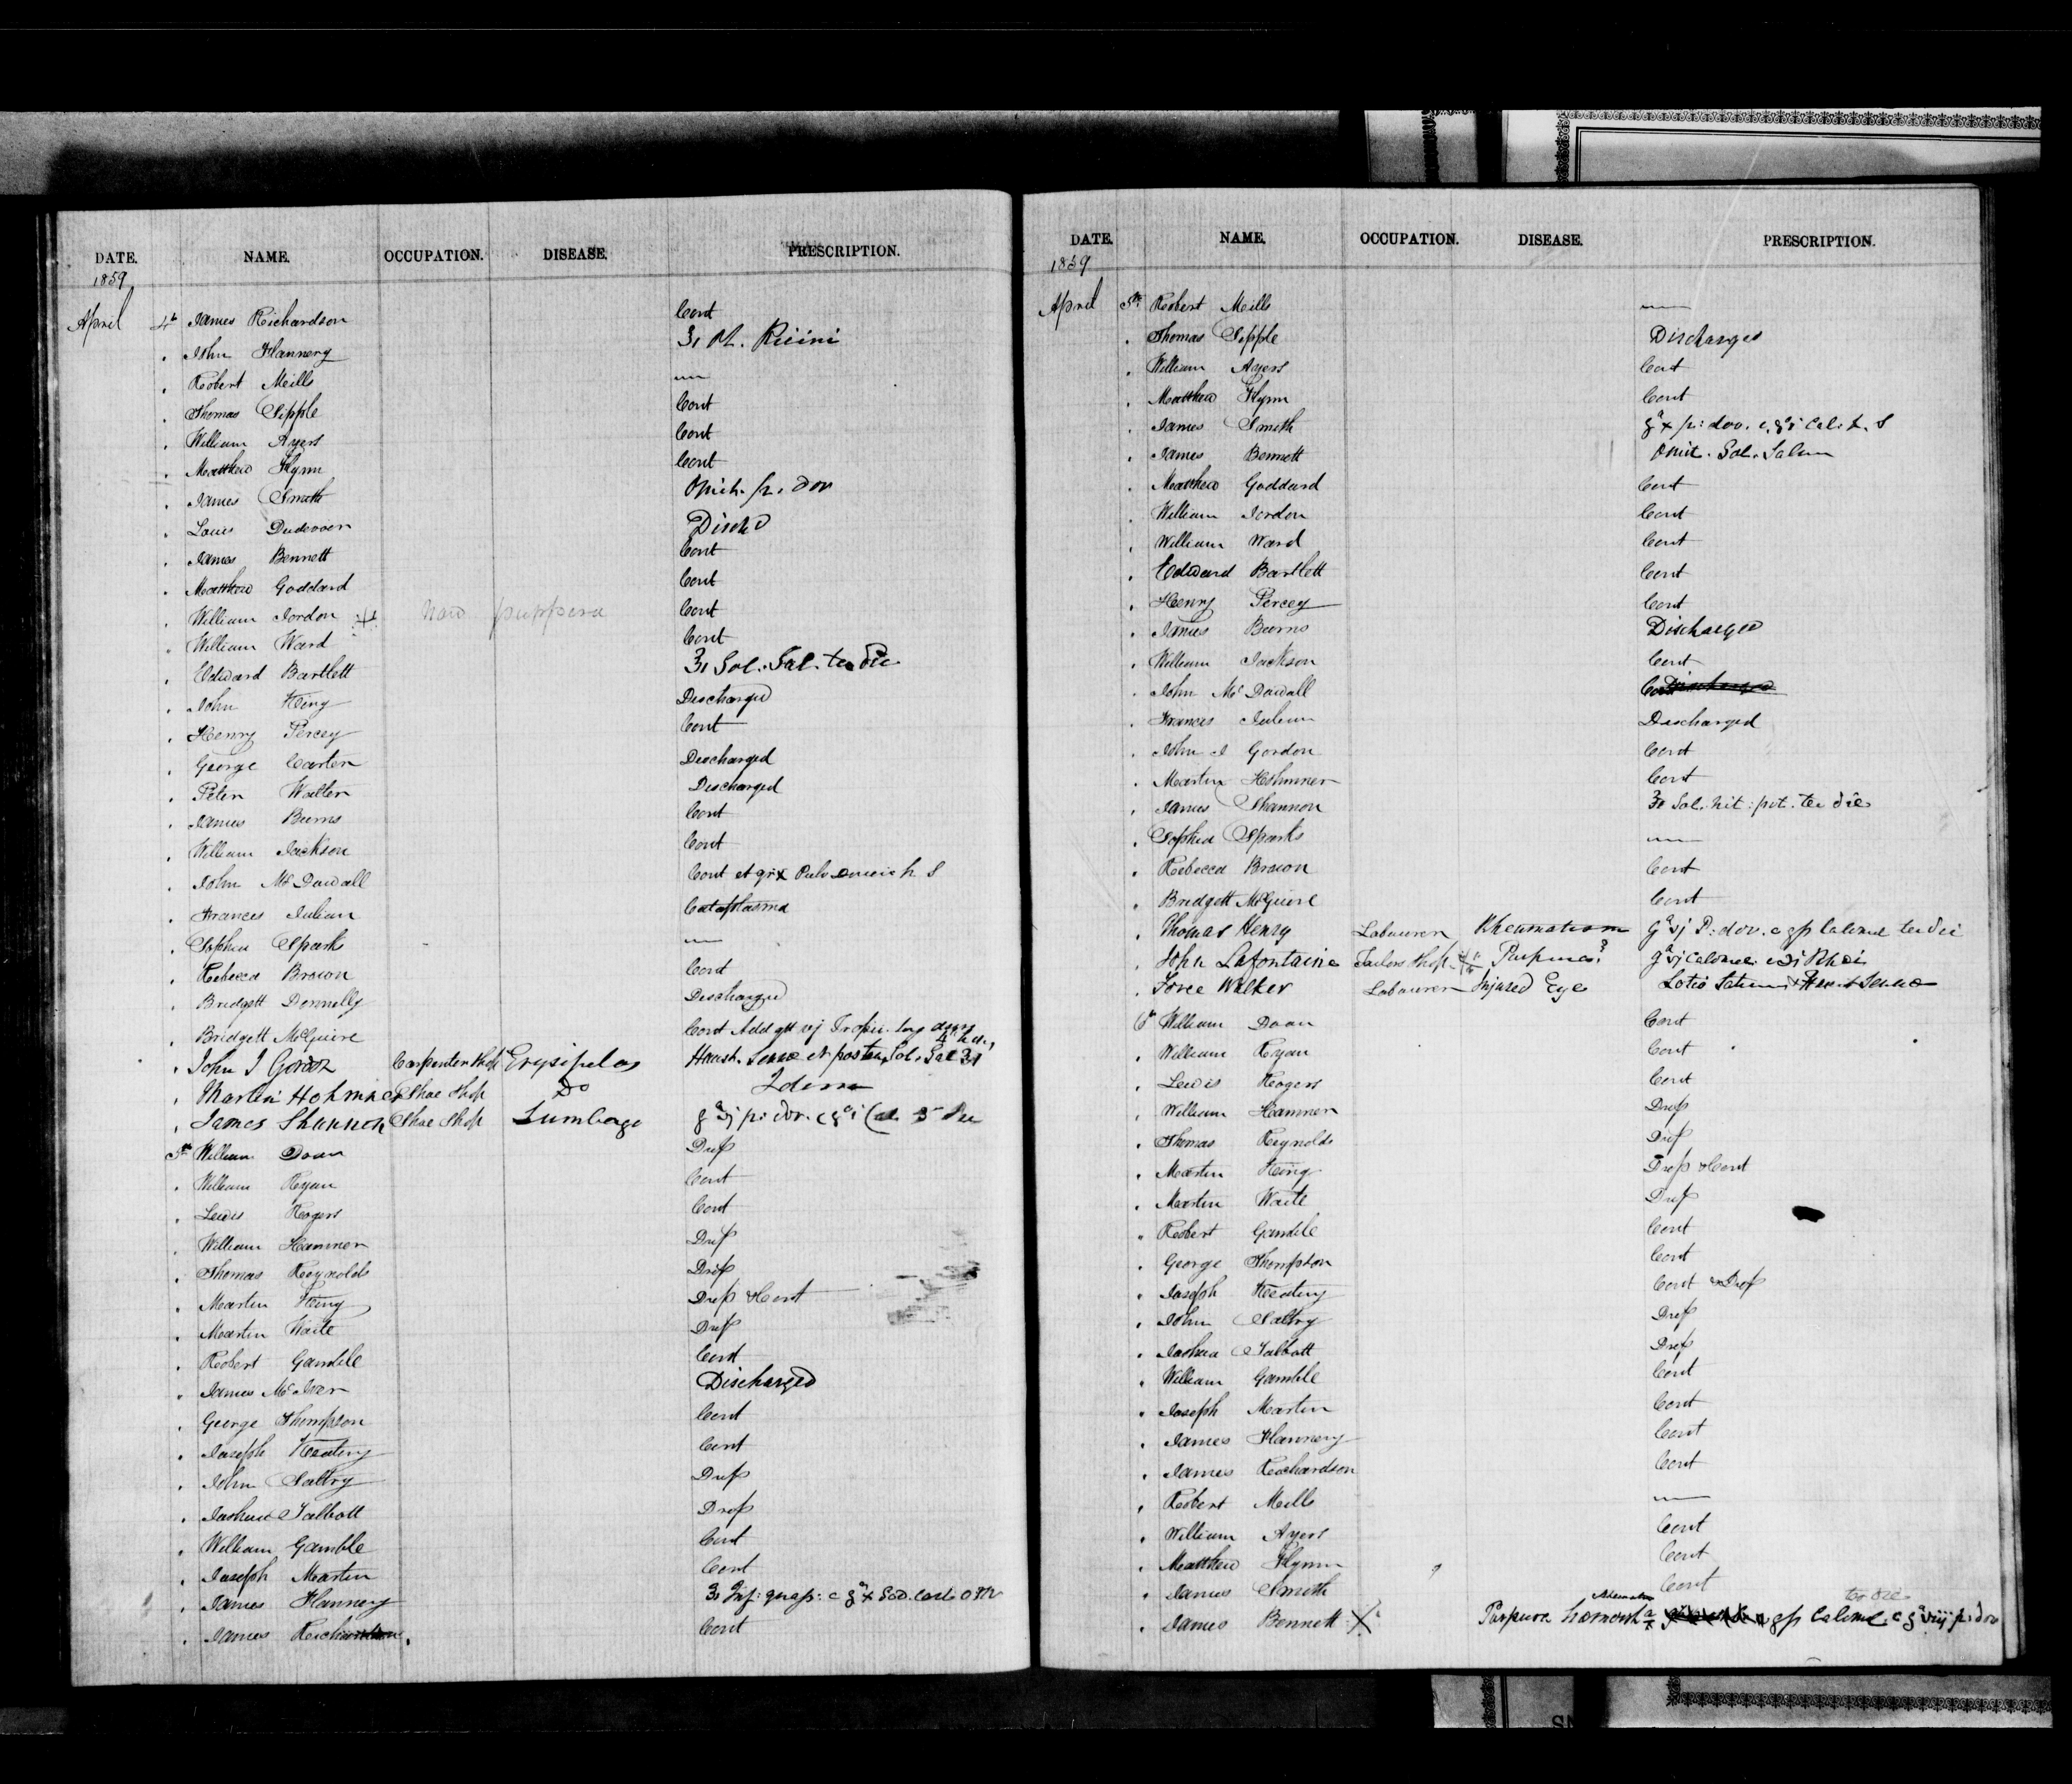 DATE. NAME. OCCUPATION. DISEASE. PRESCRIPTION.
1859
April 4th James Richardson Cont
" John Flannery ʒi Ol. Ricini
" Robert Mills —
" Thomas Sipple Cont
" William Ayers Cont
" Matthew Flynn Cont
" James Smith Omit. p. dov
" Louis Dudevoir Dischd
" James Bennett Cont
" Matthew Goddard Cont
" William Jordon now purpura Cont
" William Ward Cont
" Edward Bartlett ʒi Sol. Sal. ter die
" John King Discharged
" Henry Percey Cont
" George Carter Discharged
" Peter Walter Discharged
" James Burns Cont
" William Jackson Cont
" John McDowall Cont et grx Pulv h S
" Frances Julian Cataplasma
" Sophia Sparks —
" Rebecca Brown Cont
" Bridgett Donnelly Discharged
" Bridgett McGuire Cont Add gtt vj
" John J Gordon Carpenter Shop Erysipelas Haust. Sennae et postea Sol. Sal ʒi
" Martin Hohmner Shoe Shop Do Idem
" James Shannon Shoe Shop Lumbago gr vj p: dov. c gr i Cal
5th William Doan Drop
" William Ryan Cont
" Lewis Rogers Cont
" William Hamner Drop
" Thomas Reynolds Drop
" Martin King Drop & Cont
" Martin Waite Drop
" Robert Gamble Cont
" James McIver Discharged
" George Thompson Cont
" Joseph Keating Cont
" John Saltry Drop
" Joshua Talbott Drop
" William Gamble Cont
" Joseph Martin Cont
" James Flannery ʒi Inf: quass: c gr x Sod. Carb
" James Richardson Cont
DATE. NAME. OCCUPATION. DISEASE. PRESCRIPTION.
1859
April 5th Robert Mills —
" Thomas Sipple Discharged
" William Ayers Cont
" Matthew Flynn Cont
" James Smith gr x p: dov. c. gr i Cal: h. S
" James Bennett Omit. Sol. Salin
" Matthew Goddard Cont
" William Jordon Cont
" William Ward Cont
" Edward Bartlett Cont
" Henry Percey Cont
" James Burns Discharged
" William Jackson Cont
" John McDowall Cont Discharged
" Frances Julian Discharged
" John J Gordon Cont
" Martin Hohmner Cont
" James Shannon ʒi Sol. nit: pot. ter die
" Sophia Sparks —
" Rebecca Brown Cont
" Bridgett McGuire Cont
" Thomas Henry Labourer Rheumatism gr vj P: dov. c gss Calomel ter die
" John Lafontaine Tailors Shop Purpura? gr vj Calomel c ʒi Rhei
" Force Walker Labourer Injured Eye Lotio Saturni & Haust Sennae
6th William Doan Cont
" William Ryan Cont
" Lewis Rogers Cont
" William Hamner Drop
" Thomas Reynolds Drop
" Martin King Drop & Cont
" Martin Waite Drop
" Robert Gamble Cont
" George Thompson Cont
" Joseph Keating Cont & Drop
" John Saltry Drop
" Joshua Talbott Drop
" William Gamble Cont
" Joseph Martin Cont
" James Flannery Cont
" James Richardson Cont
" Robert Mills —
" William Ayers Cont
" Matthew Flynn Cont
" James Smith Cont
" James Bennett Purpura gss Calomel c gr viij p: dov ter die